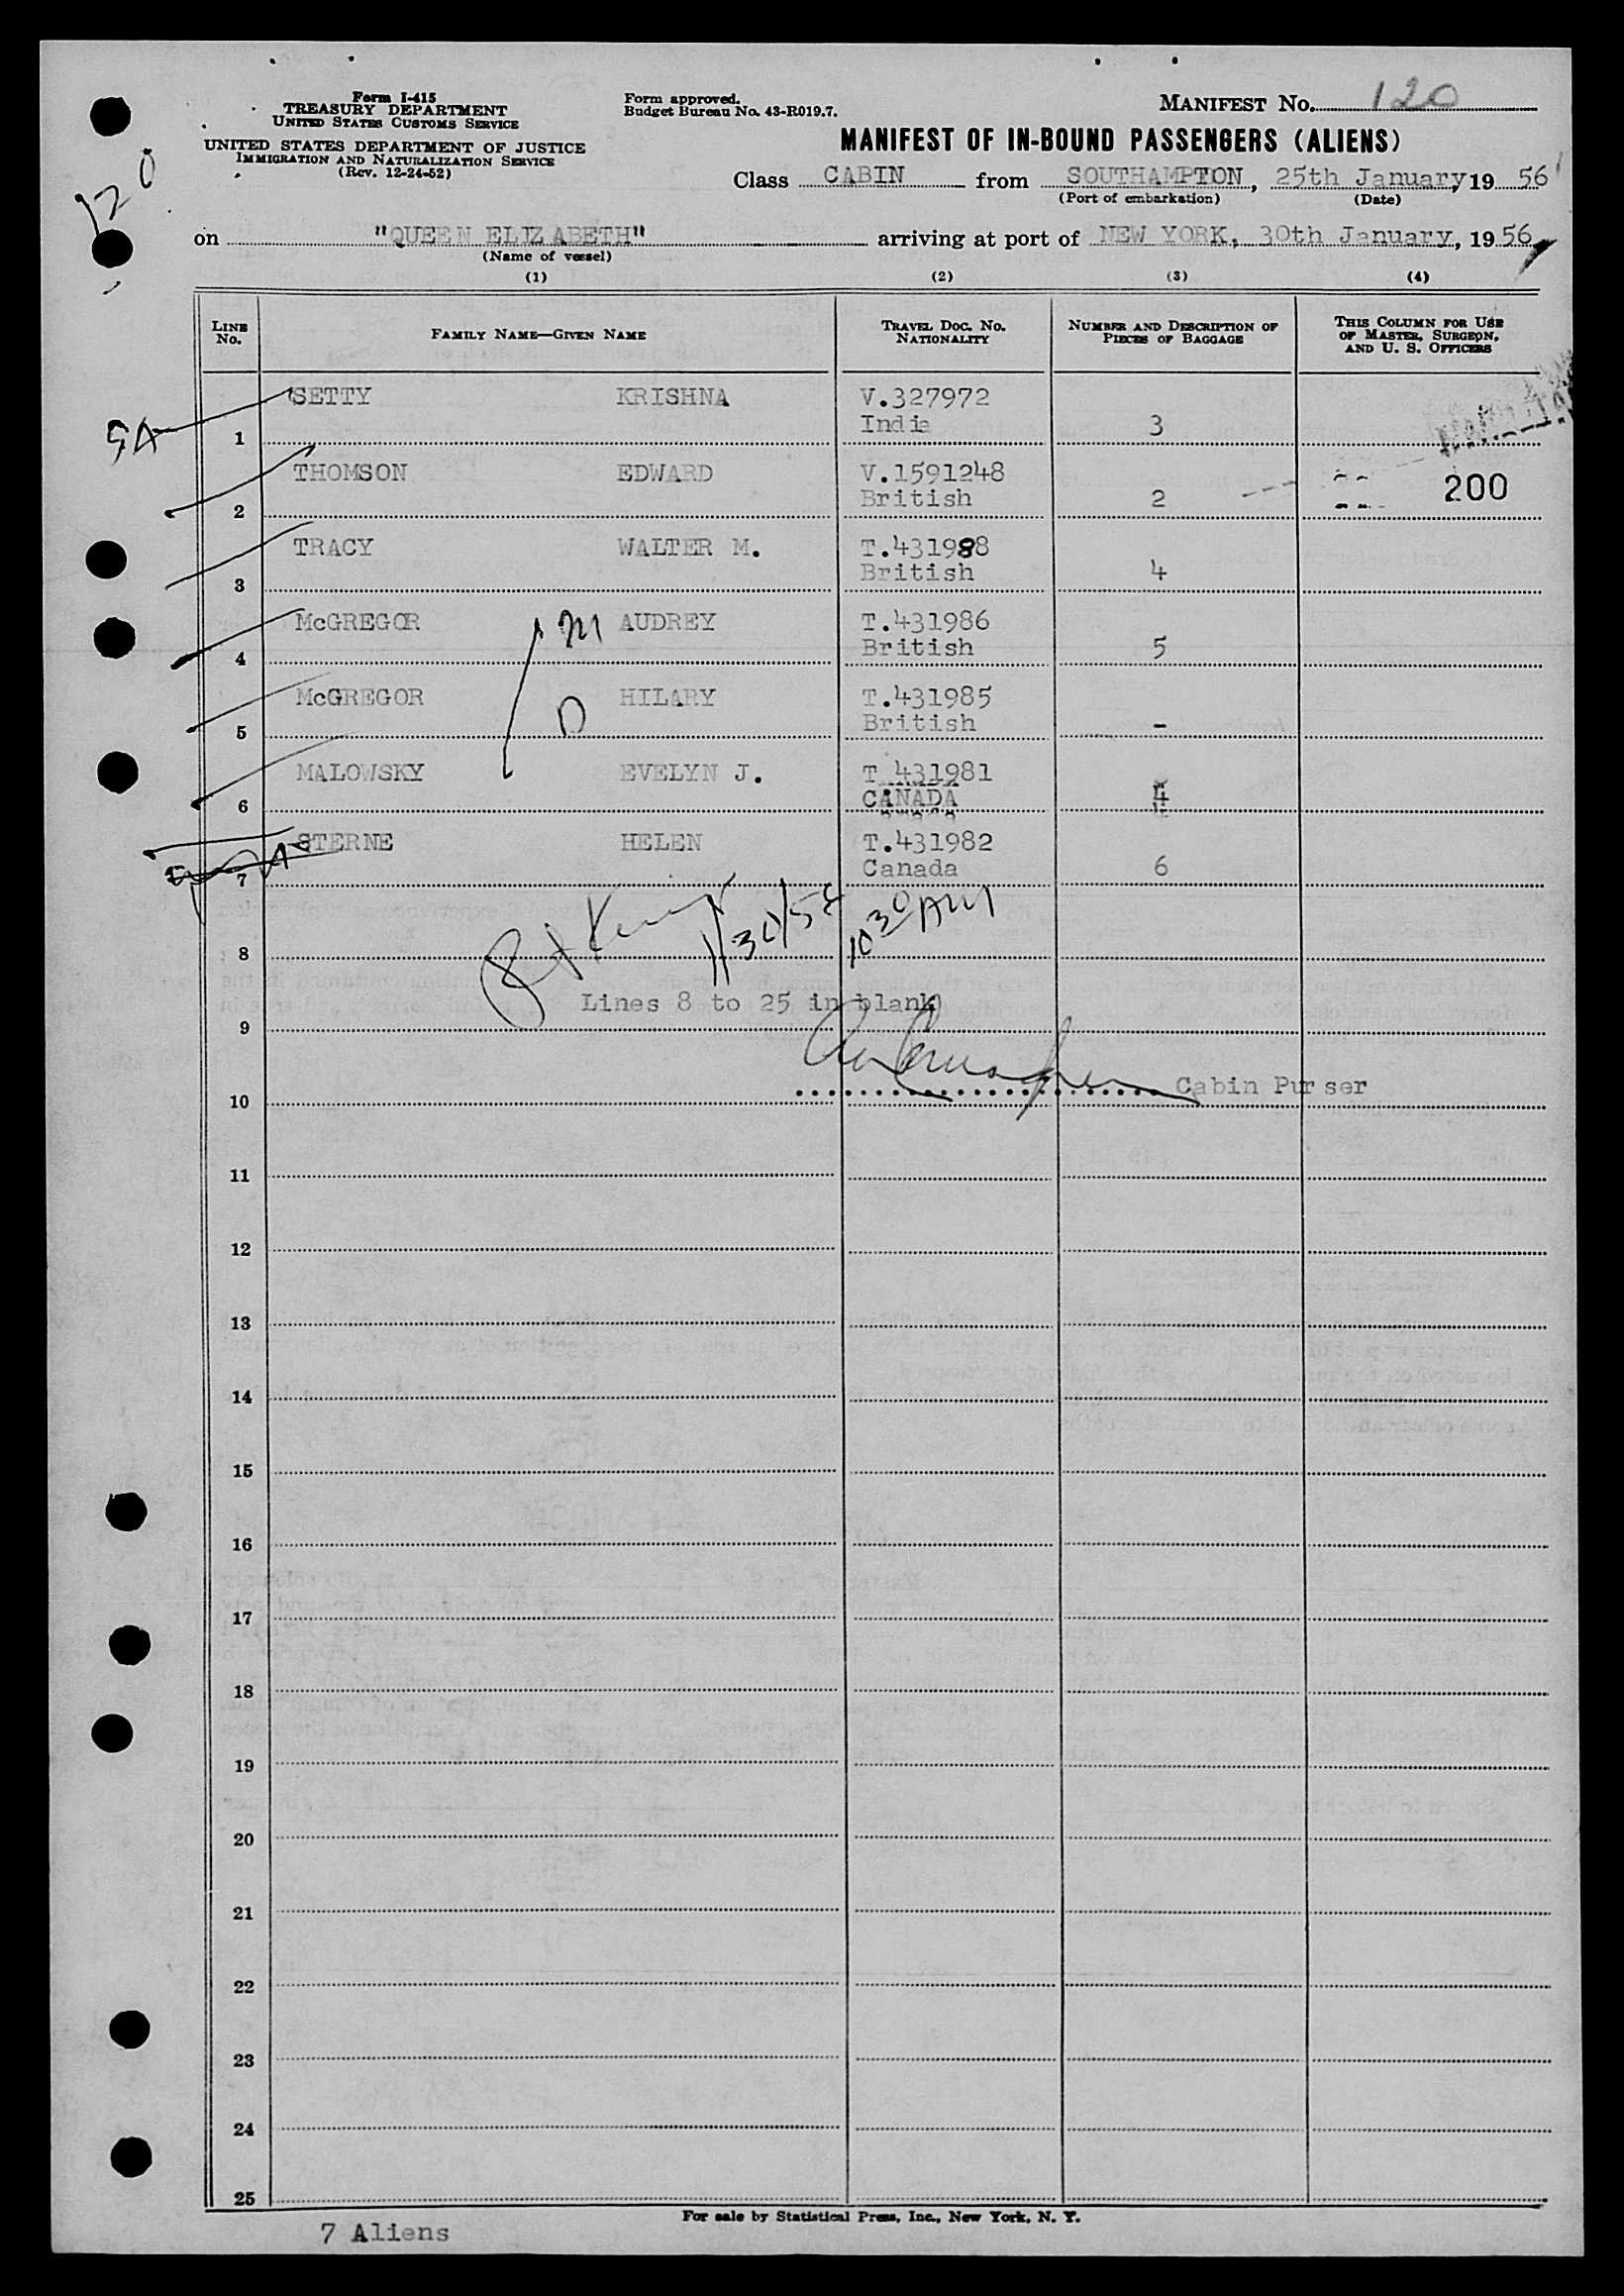 Form I-415
TREASURY DEPARTMENT
UNITED STATES CUSTOMS SERVICE
UNITED STATES DEPARTMENT OF JUSTICE
IMMIGRATION AND NATURALIZATION SERVICE
(Rev. 12-24-52)
Form approved.
Budget Bureau No. 43-R019.7.
MANIFEST NO. 120
120
MANIFEST OF IN-BOUND PASSENGERS (ALIENS)
Class CABIN from SOUTHAMPTON, 25th January, 1956
(Port of embarkation) (Date)
on "QUEEN ELIZABETH" arriving at port of NEW YORK, 30th January, 1956
(Name of vessel)
(1) (2) (3) (4)
LINE NO.
FAMILY NAME—GIVEN NAME
TRAVEL DOC. NO. NATIONALITY
NUMBER AND DESCRIPTION OF PIECES OF BAGGAGE
THIS COLUMN FOR USE OF MASTER, SURGEON, AND U. S. OFFICERS
SETTY KRISHNA V.327972
SA 1 India 3
THOMSON EDWARD V.1591248
2 British 2 200
TRACY WALTER M. T.431988
3 British 4
McGREGOR M AUDREY T.431986
4 British 5
McGREGOR D HILARY T.431985
5 British -
MALOWSKY EVELYN J. T 431981
6 CANADA 4
STERNE HELEN T.431982
7 Canada 6
1/30/56 10 30 AM
8
Lines 8 to 25 in blank
9
Cabin Purser
10
11
12
13
14
15
16
17
18
19
20
21
22
23
24
25
For sale by Statistical Press, Inc., New York, N. Y.
7 Aliens